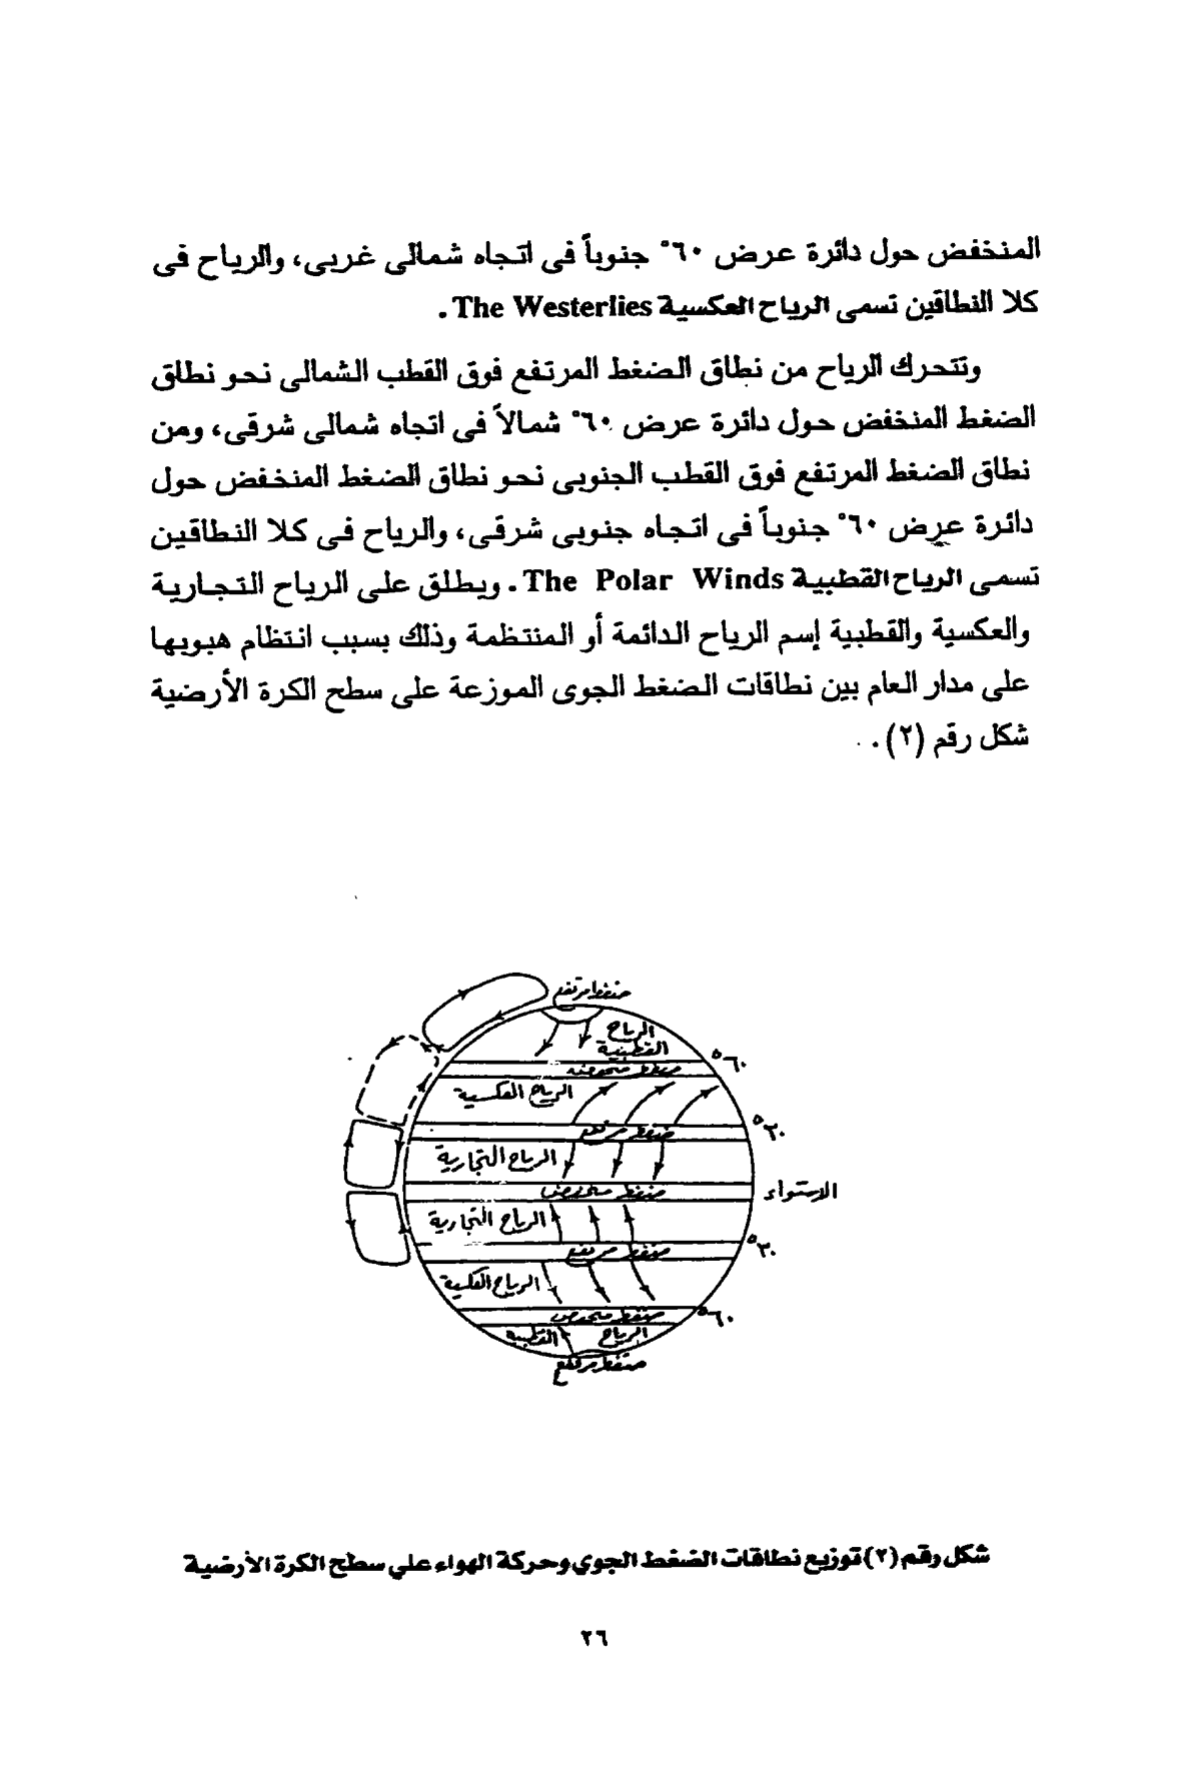 المنخفض حول دائرة عرض ٦٠° جنوباً فى اتجاه شمالى غربى، والرياح فى
كلا النطاقين تسمى الرياح العكسية The Westerlies .
وتتحرك الرياح من نطاق الضغط المرتفع فوق القطب الشمالى نحو نطاق
الضغط المنخفض حول دائرة عرض ٦٠° شمالاً فى اتجاه شمالى شرقى، ومن
نطاق الضغط المرتفع فوق القطب الجنوبى نحو نطاق الضغط المنخفض حول
دائرة عرض ٦٠° جنوباً فى اتجاه جنوبى شرقى، والرياح فى كلا النطاقين
تسمى الرياح القطبية The Polar Winds . ويطلق على الرياح التجارية
والعكسية والقطبية إسم الرياح الدائمة أو المنتظمة وذلك بسبب انتظام هبوبها
على مدار العام بين نطاقات الضغط الجوى الموزعة على سطح الكرة الأرضية
شكل رقم (٢) .
ضغط مرتفع
الرياح
القطبية
°٦٠
ضغط منخفض
الرياح العكسية
°٣٠
ضغط مرتفع
الرياح التجارية
ضغط منخفض
الاستواء
الرياح التجارية
°٣٠
ضغط مرتفع
الرياح العكسية
ضغط منخفض
°٦٠
الرياح القطبية
ضغط مرتفع
شكل رقم (٢) توزيع نطاقات الضغط الجوي وحركة الهواء علي سطح الكرة الأرضية
٢٦